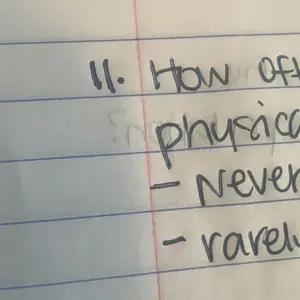 11. How oft
physica
- Never
- rarely